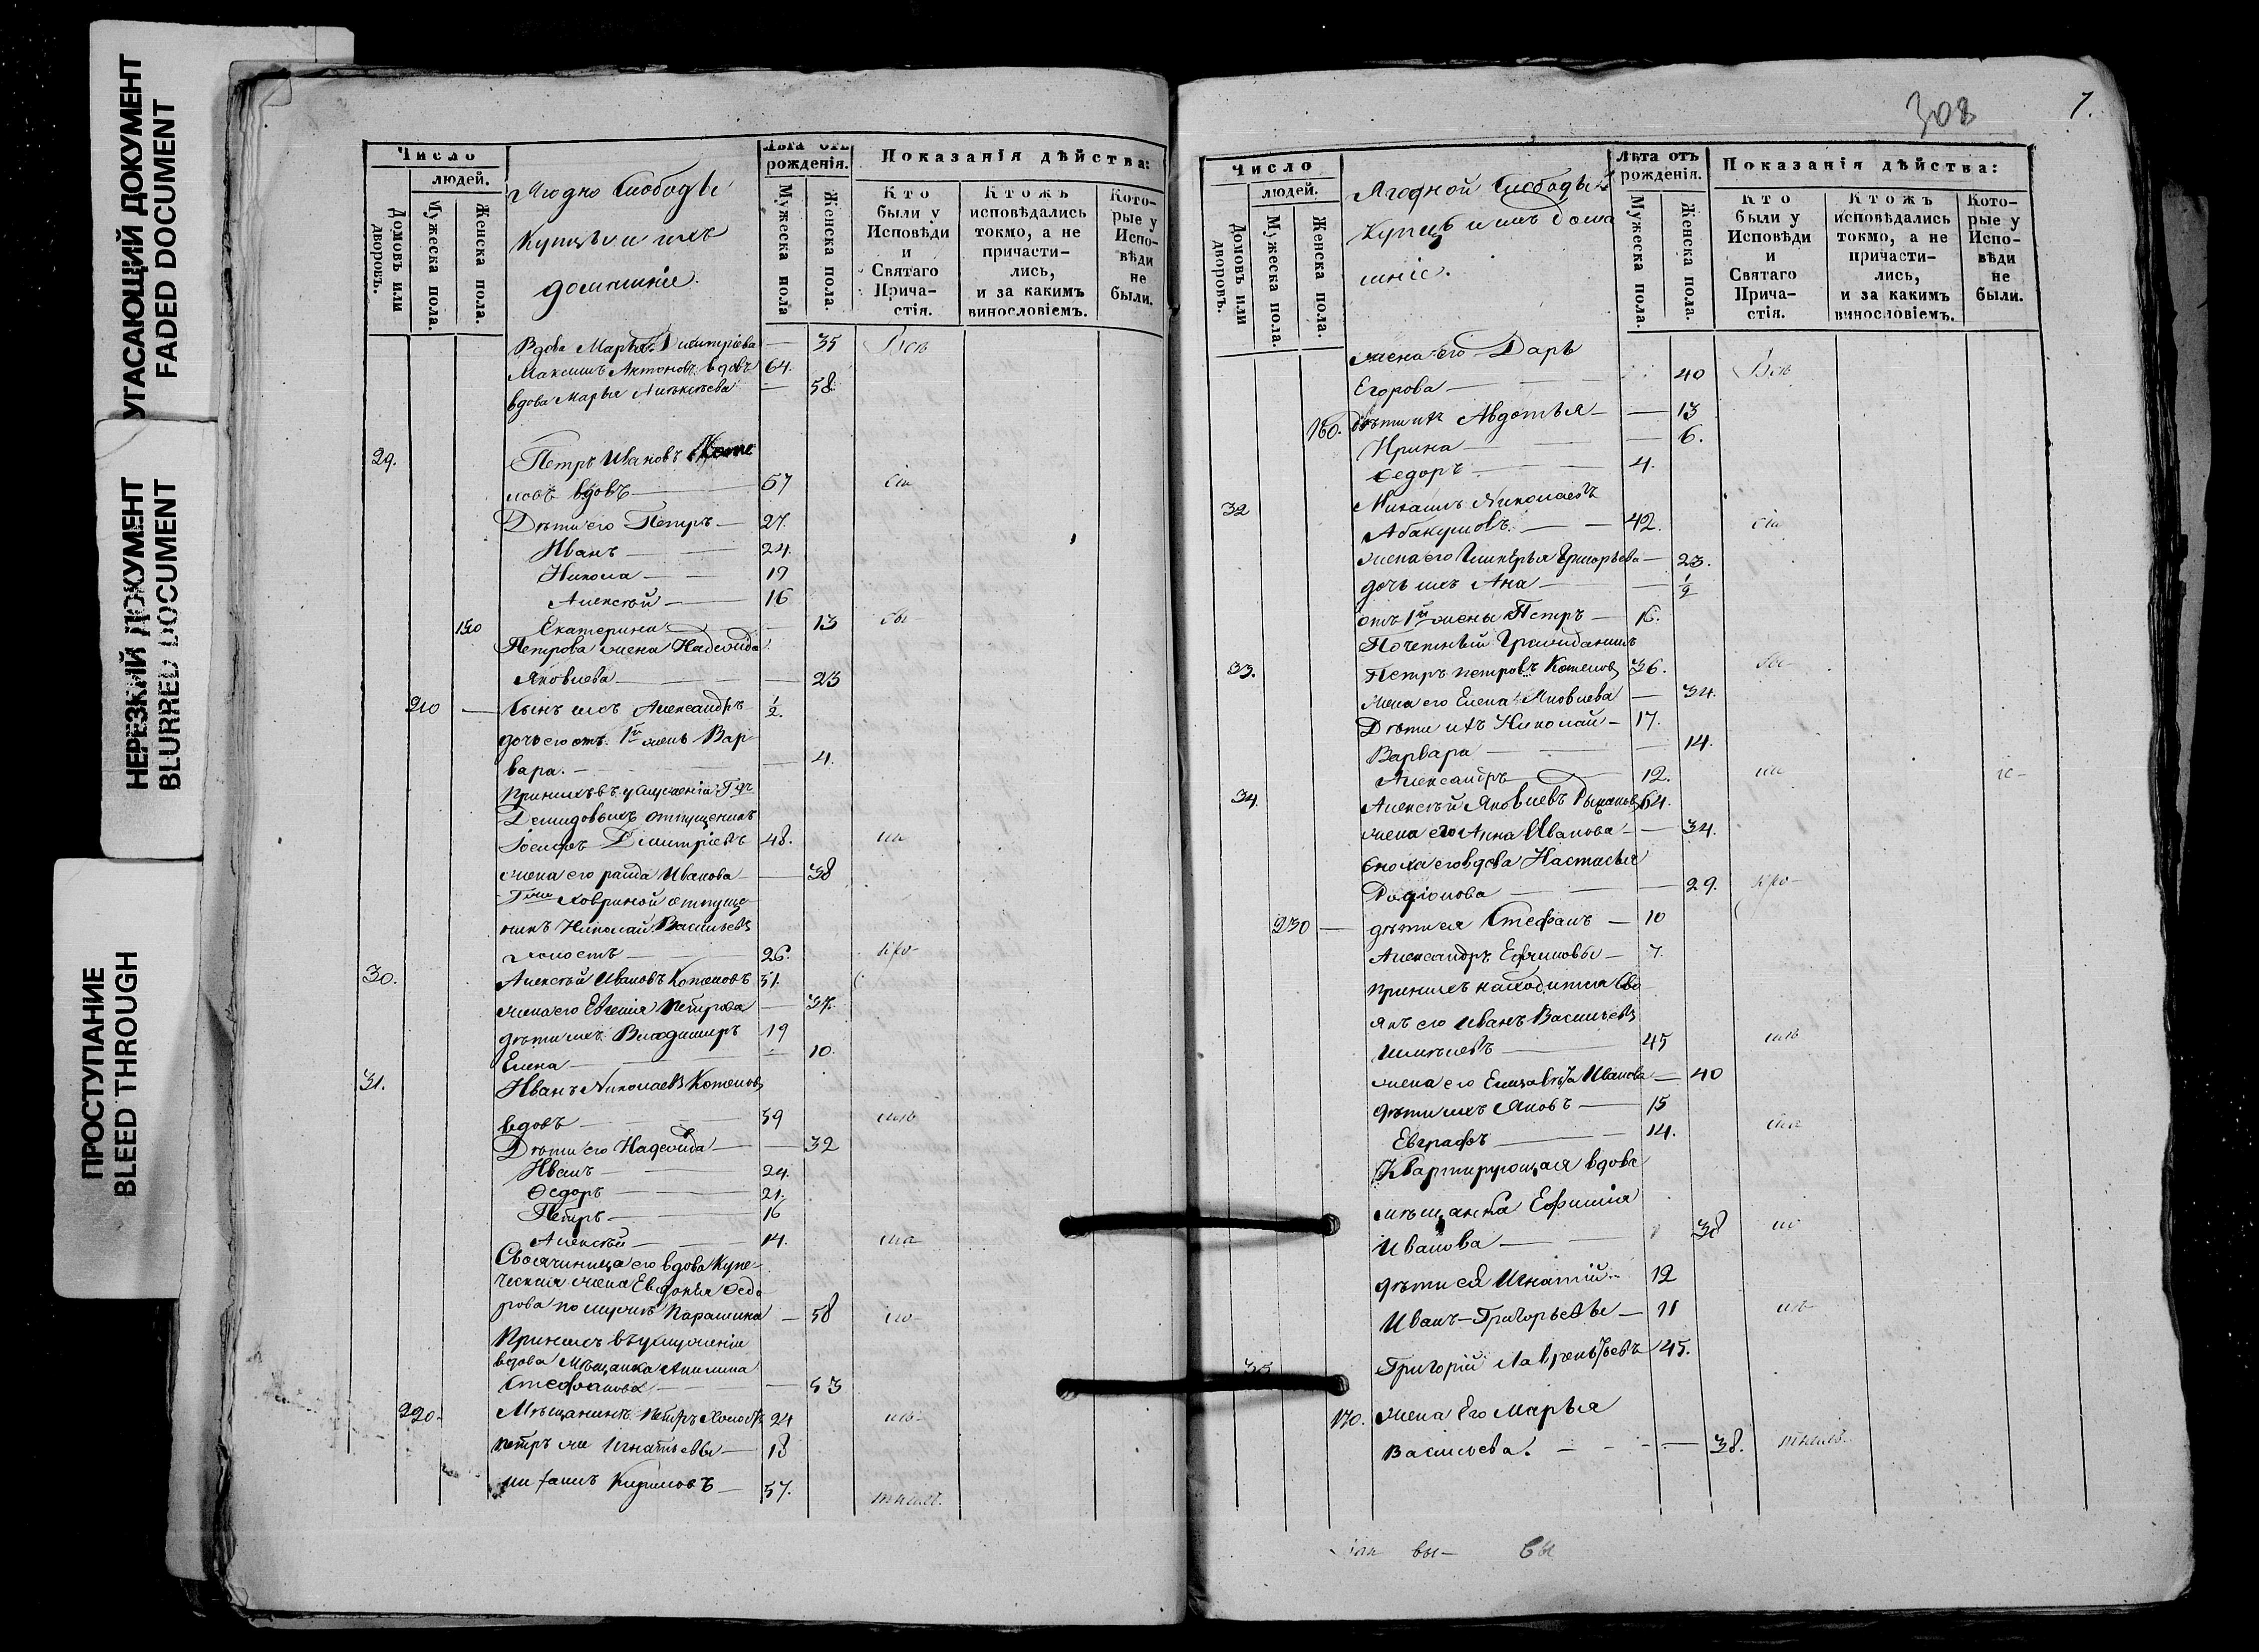 УГАСАЮЩИЙ ДОКУМЕНТ
FADED DOCUMENT
НЕРЕЗКИЙ ДОКУМЕНТ
BLURRED DOCUMENT
ПРОСТУПАНИЕ
BLEED THROUGH
Число
людей.
Домовъ или дворовъ.
Мужеска пола.
Женска пола.
Ягодно Слободы
Купцы и ихъ
домашніе.
Лѣта отъ рожденія.
Мужеска пола
Женска пола.
Показанія дѣйства:
Кто были у Исповѣди и Святаго Прича-стія.
Ктожъ исповѣдались токмо, а не причасти-лись, и за какимъ винословіемъ.
Кото-рые у Испо-вѣди не были.
Вдова Марья Димитріева — 35 Всѣ
Максимъ Антоновъ вдовъ 64.
вдова Марья Алексѣева — 58.
29. Петръ Ивановъ Коте
ловъ вдовъ — 57
Дѣти его Петръ — 27.
Иванъ — 24.
Никола — 19
Алексѣй — 16
150 Екатерина — 13
Петрова жена Надежда
Яковлева — 23
210 — Сынъ ихъ Александръ ½.
дочь его отъ 1й жены Вар
вара. — 4.
При нихъ въ услуженіи
Демидовыхъ отпущенникъ
Іосифъ Димитріевъ 48.
жена его Ивановна — 38
отпуще
никъ Николай Васильевъ
холостъ — 26.
30. Алексѣй Ивановъ Котеловъ 51.
жена его Евгенія Петрова — 37.
дѣти ихъ Владимиръ 19
Елена — 10.
31. Иванъ Николаевъ Котеловъ
вдовъ — 59
Дѣти его Надежда — 32
Иванъ — 24.
Ѳедоръ — 21.
Петръ — 16
Алексѣй — 14.
Своячиница его вдова Купе-
ческая жена Евдокія Ѳедо
рова по мужѣ Парашина — 58
При нихъ въ услуженіи
вдова Мѣщанка Акилина
Стефанова — 53
220 — Мѣщанинъ Петръ холостъ 24
Петръ же Игнатьевы — 18
Кириловъ — 57.
308
7.
Число
людей.
Домовъ или дворовъ.
Мужеска пола.
Женска пола.
Ягодной Слободы
Купцы и ихъ дома
шніе.
Лѣта отъ рожденія.
Мужеска пола.
Женска пола.
Показанія дѣйства:
Кто были у Исповѣди и Святаго Прича-стія.
Ктожъ исповѣдались токмо, а не причасти-лись, и за какимъ винословіемъ.
Кото-рые у Испо-вѣди не были.
жена его Дарья
Егорова — 40 Всѣ
160. дѣти ихъ Авдотья — 13
Ирина — 6.
Ѳедоръ — 4.
32 Михаилъ Николаевъ
Абакумовъ — 42.
жена его Гликерья Григорьева — 23.
дочь ихъ Анна — ½
отъ 1й жены Петръ — 16.
Почетный Гражданинъ
33. Петръ Петровъ Котеловъ 36.
жена его Елена Яковлева — 34.
Дѣти ихъ Николай — 17.
Варвара — 14.
Александръ — 12.
34. Алексѣй Яковлевъ Рыжановъ 64.
жена его Анна Иванова — 34.
Сноха его вдова Настасья
Родіонова — 29.
230 — дѣти ея Стефанъ — 10
Александръ Ефимовы — 7.
При нихъ находится Сво
якъ его Иванъ Васильевъ
— 45
жена его Елизавета Иванова — 40
дѣти ихъ Яковъ — 15
Евграфъ — 14.
Квартирующая вдова
мѣщанка Ефимія
Иванова — 38
дѣти ея Игнатій — 12
Иванъ Григорьевы — 11
35 Григорій Лаврентьевъ 45.
170. жена Его Марья
Васильева. — 38.
вы— вы